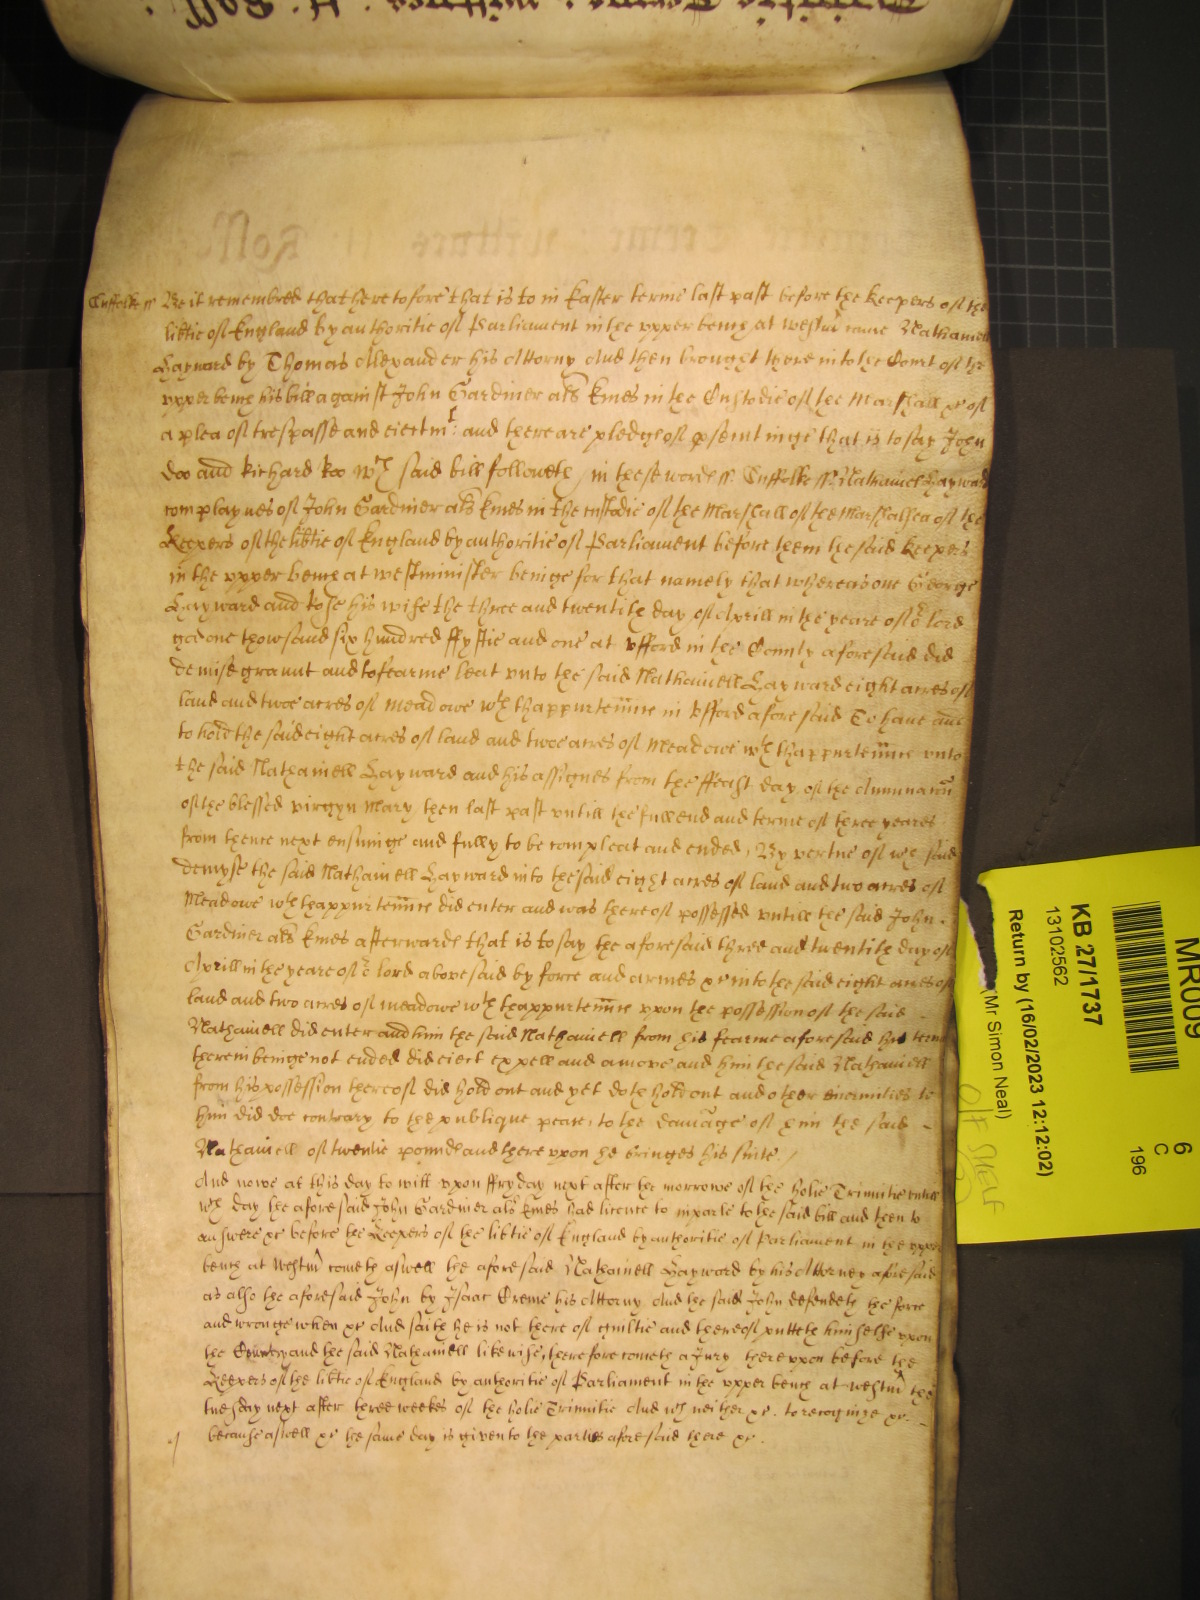 Suffolke ss Be it remembred that heretofore that is to in Easter terme last past before the Keepers of the
lib̃tie of England by authoritie of Parliament in the vpper bench at Westm̃ came Nathaniell
Hayward by Thomas Allexander his Attorny And then brought there into the Court of the
vpper bench his bill against John Gardiner als̃ Emes in the Custodie of the Marshall &c of
a plea of trespasse and eiectmt: and there are pledge of psecutinge that is to say John
Doo and Richard Roo wch said bill followeth in these wordes ss. Suffolke ss. Nathaniel Hayward
complaynes of John Gardiner als̃ Emes in the custodie of the Marshall of the Marshalsea of the
Keepers of the lib̃tie of England by authoritie of Parliament before them the said Keepers
in the vpper bench at Westminister beinge for that namely that whereas one George
Hayward and Rose his wife the three and twentith day of Aprill in the yeare of or lord
god one thowsand six hundred ffyftie and one at Vfford in the County aforesaid did
demise graunt and to fearme leat vnto the said Nathaniell Hayward eight acres of
land and twoe acres of meadowe wth thappurteñnce in Vfford aforesaid To have and
to hold the said eight acres of land and twoe acres of Meadowe wth thappurteñnce vnto
the said Nathaniell Hayward and his assignes from the ffeast day of the Annunacõn
of the blessed virgyn Mary then last past vntill the full end and terme of three yeares
from thence next ensuinge and fully to be compleat and ended, By vertue of wch said
demyse the said Nathaniell Hayward into the said eight acres of land and two acres of
Meadowe wth thappurteñnce did enter and was thereof possessed vntill the said John
Gardiner als̃ Emes afterwardes that is to say the aforesaid three and twentith day of
Aprill in the yeare of or lord abovesaid by force and armes &c into the said eight acres of
land and two acres of meadowe wth thappurteñnce vpon the possession of the said
Nathaniell did enter and him the said Nathaniell from his fearme aforesaid his terme
therein beinge not ended did eiect expell and amove and him the said Nathaniell
from his possession thereof did hold out and yet doth hold out and other enormities to
him did doe contrary to the publique peace, to the damage of him the said
Nathaniell of twentie pounde and therevpon he bringes his suite. /
And nowe at this day to witt vpon ffryday next after the morrowe of the holie Trinnitie vntill
wch day the aforesaid John Gardiner als̃ Emes had licence to imparle to the said bill and then to
answere &c before the Keepers of the lib̃tie of England by authoritie of Parliament in the vpper
bench at Westm̃ cometh aswell the aforesaid Nathaniell Hayward by his Attorney aforesaid
as also the aforesaid John by Isaac Creme his Attorny And the said John defendeth the force
and wronge when &c And saith he is not thereof guiltie and thereof putteth himselfe vpon
the Country and the said Nathaniell likewise, therefore cometh a Jury therevpon before the
Keepers of the lib̃tie of England by authoritie of Parliament in the vpper bench at Westm̃ the
tuesday next after three weekes of the holie Trinnitie And wch neither &c. to recognize &c.
because aswell &c the same day is given to the parties aforesaid there &c.
MR009
6
C
196
KB 27/1737
13102562
Return by (16/02/2023 12:12:02)
(Mr Simon Neal)
O/F SHELF